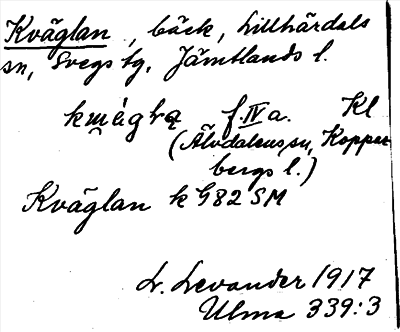 Kväglan, bäck, Lillhärdals
sn, Svegs tg, Jämtlands l.
f. IV a. Kl
(Älvdalens sn, Kopper-
bergs l.)
Kväglan k G82 SM
L. Levander 1917
Ulma 339:3